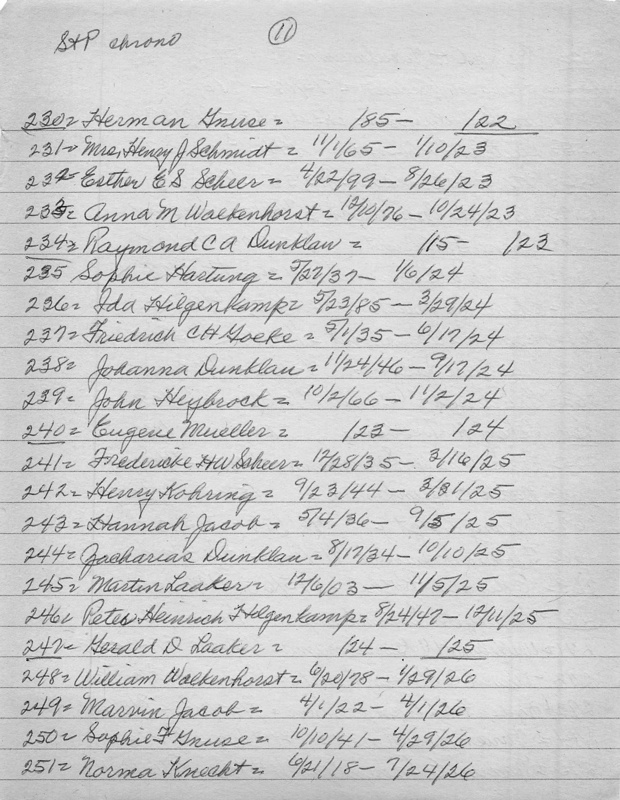 StP chrono 11
230= Herman Gnuse = /85 — /22
231= Mrs. Henry J Schmidt = 11/1/65 — 1/10/23
232= Esther E S Scheer = 4/22/99 — 8/26/23
233= Anna M Wolkenhorst = 12/10/76 — 10/24/23
234= Raymond C A Dunklau = /15 — /23
235 Sophie Hartung = 5/27/37 — 1/6/24
236= Ida Hilgenkamp = 5/23/85 — 3/29/24
237= Friedrich CH Goeke = 5/1/35 — 6/17/24
238= Johanna Dunklau = 11/24/46 — 9/17/24
239= John Heybrock = 10/2/66 — 11/2/24
240= Eugene Mueller = /23 — /24
241= Fredericke HW Scheer = 12/28/35 — 3/16/25
242= Henry Kohring = 9/23/44 — 3/31/25
243= Hannah Jacob = 5/4/36 — 9/5/25
244= Zacharias Dunklau = 8/17/34 — 10/10/25
245= Martin Laaker = 12/6/03 — 11/5/25
246= Peter Heinrich Hilgenkamp = 8/24/47 — 12/11/25
247= Gerald D Laaker = /24 — /25
248= William Wolkenhorst = 6/20/78 — 1/29/26
249= Marvin Jacob = 4/1/22 — 4/1/26
250= Sophie F Gnuse = 10/10/41 — 4/29/26
251= Norma Knecht = 6/21/18 — 7/24/26